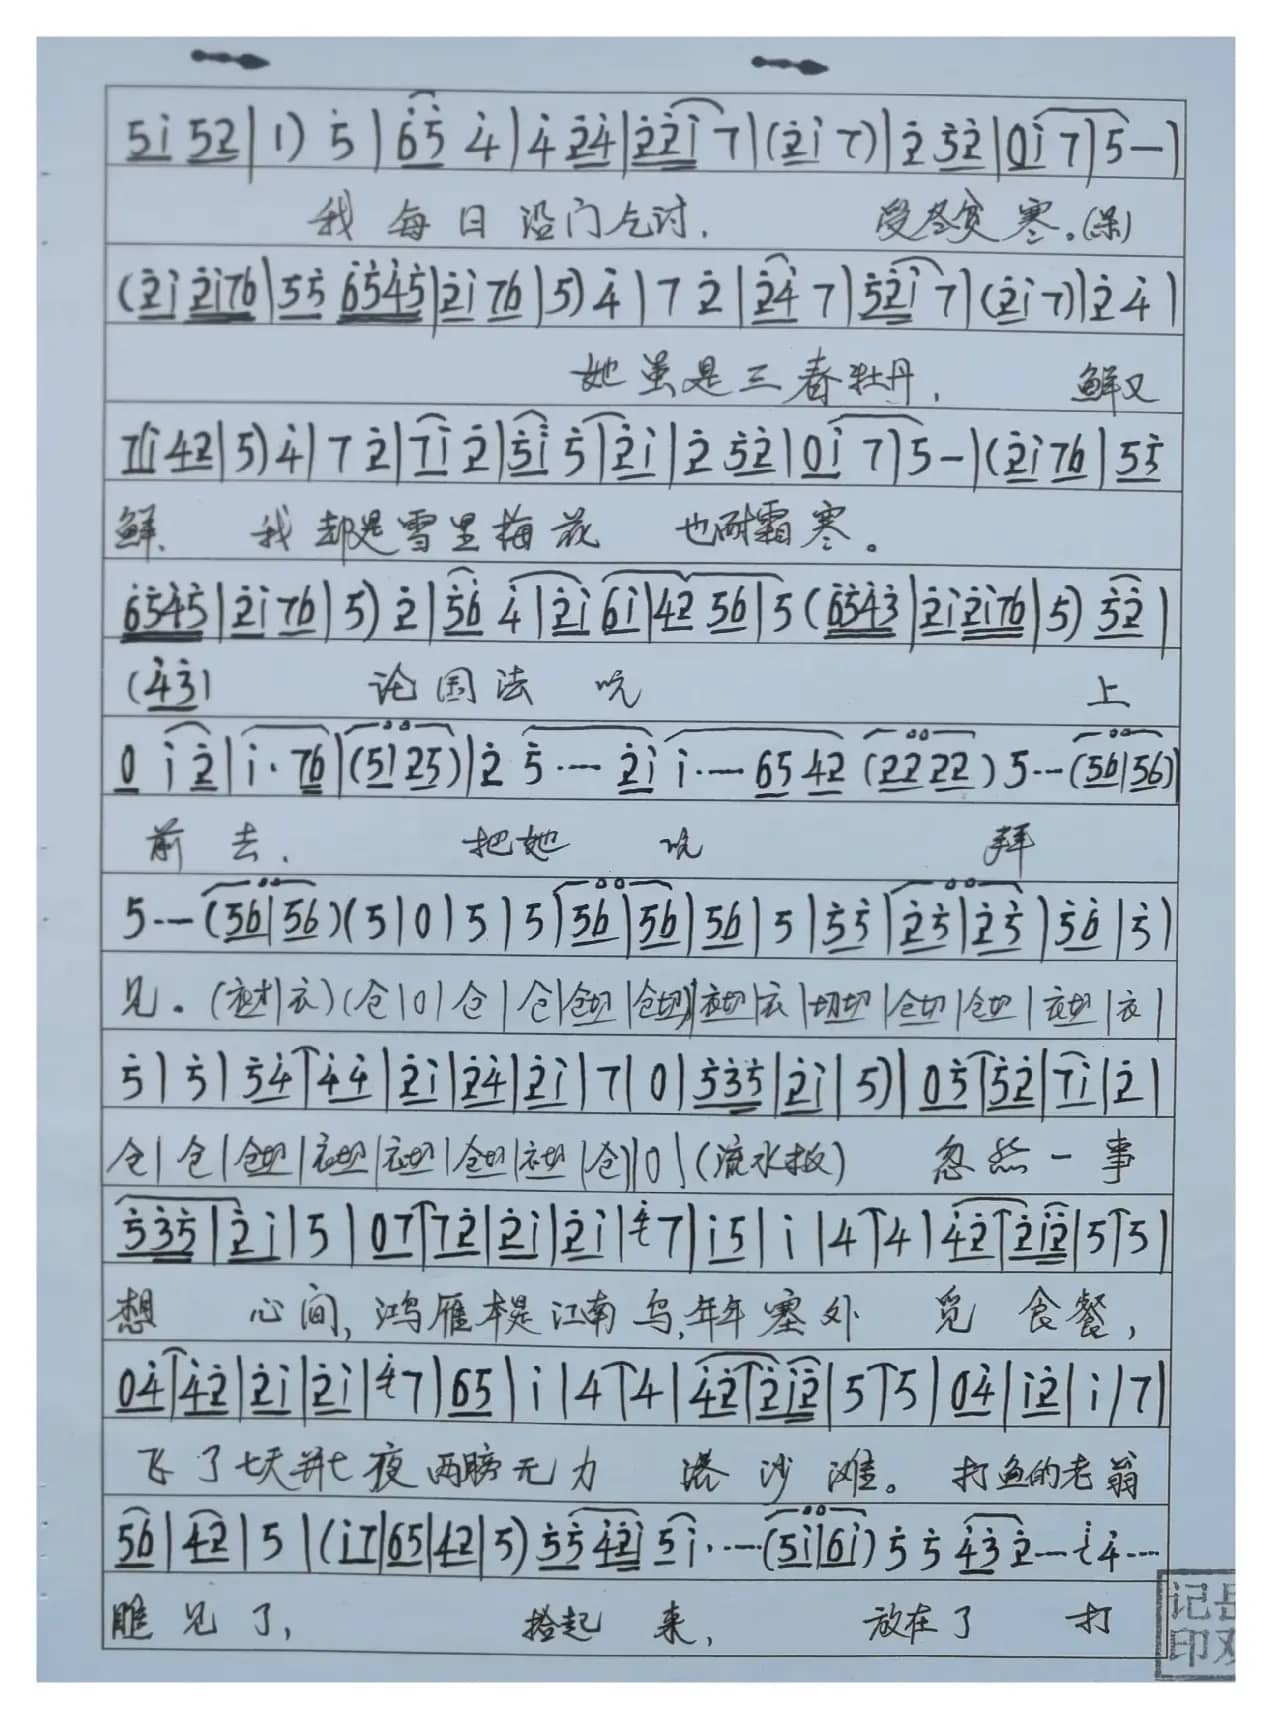 5i 52|1) 5|65 4|4 24|22i 7|(2i 7)|2 32|0i 7|5—|
我每日沿门乞讨,受尽贫寒。(呆)
(2i 2i76|55 6545|2i 76|5) 4|7 2|24 7|52i 7|(2i 7)|2 4|
她虽是三春牡丹,鲜又
7(i 42|5) 4|7 2|7i 2|5i 5|2i|2 52|0i 7|5—|(2i 76|55
鲜、我却是雪里梅花 也耐霜寒。
6545|2i 76|5) 2|56 4|2i 6i|42 56|5 (6543|2i 2i76|5) 52|
(43) 论国法吭 上
0 i 2|i· 76|(51 25)|2 5·--- 2i i·--- 65 42 (22 22) 5--- (56|56)
前去、把她 吭 拜
5--- (56|56)(5|0|5|5|56|56|56|5|55|25|25|56|5|
见。(衣才|衣)(仓|0|仓|仓|仓切|仓切|衣切|衣|切切|仓切|仓切|衣切|衣|
5|5|54|44|2i|24|2i|7|0|535|2i|5)|05|52|7i|2|
仓|仓|仓切|衣切|衣切|仓切|衣切|仓)|0|(流水板) 忽然一事
535|2i|5|07|72|2i|2i|47|i5|i|4|4|42|2i2|5|5|
想 心间,鸿雁本是江南鸟,年年塞外 觅食餐,
04|42|2i|2i|47|65|i|4|4|42|2i2|5|5|04|i2|i|7|
飞了七天并七夜两膀无力 落沙滩。打鱼的老翁
56|42|5|(i7|65|42|5) 55 42i 5i·---(5i|6i) 5 5 43 2--- i4---
瞧见了,拾起来,放在了 打
记
印